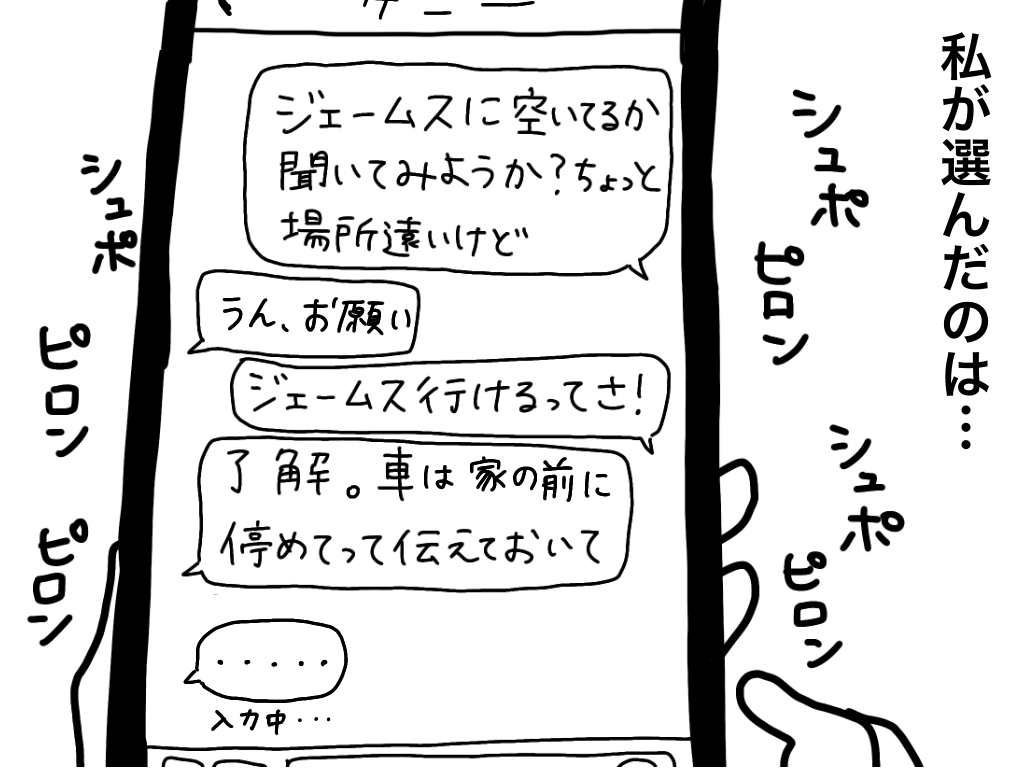 私が選んだのは…
ジェームスに空いてるか
聞いてみようか?ちょっと
場所遠いけど
うん、お願い
ジェームス行けるってさ!
了解。車は家の前に
停めてって伝えておいて
・・・・・
入力中・・・
シュポ
ピロン
シュポ
ピロン
シュポ
ピロン
ピロン